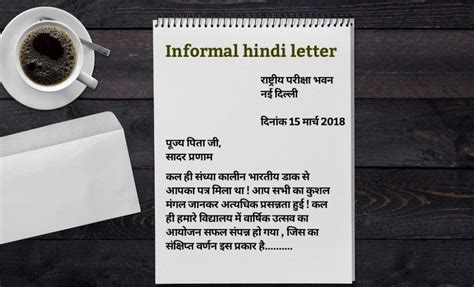 Informal hindi letter
राष्ट्रीय परीक्षा भवन
नई दिल्ली
दिनांक 15 मार्च 2018
पूज्य पिता जी,
सादर प्रणाम
कल ही संध्या कालीन भारतीय डाक से
आपका पत्र मिला था ! आप सभी का कुशल
मंगल जानकर अत्यधिक प्रसन्नता हुई ! कल
ही हमारे विद्यालय में वार्षिक उत्सव का
आयोजन सफल संपन्न हो गया , जिस का
संक्षिप्त वर्णन इस प्रकार है..........